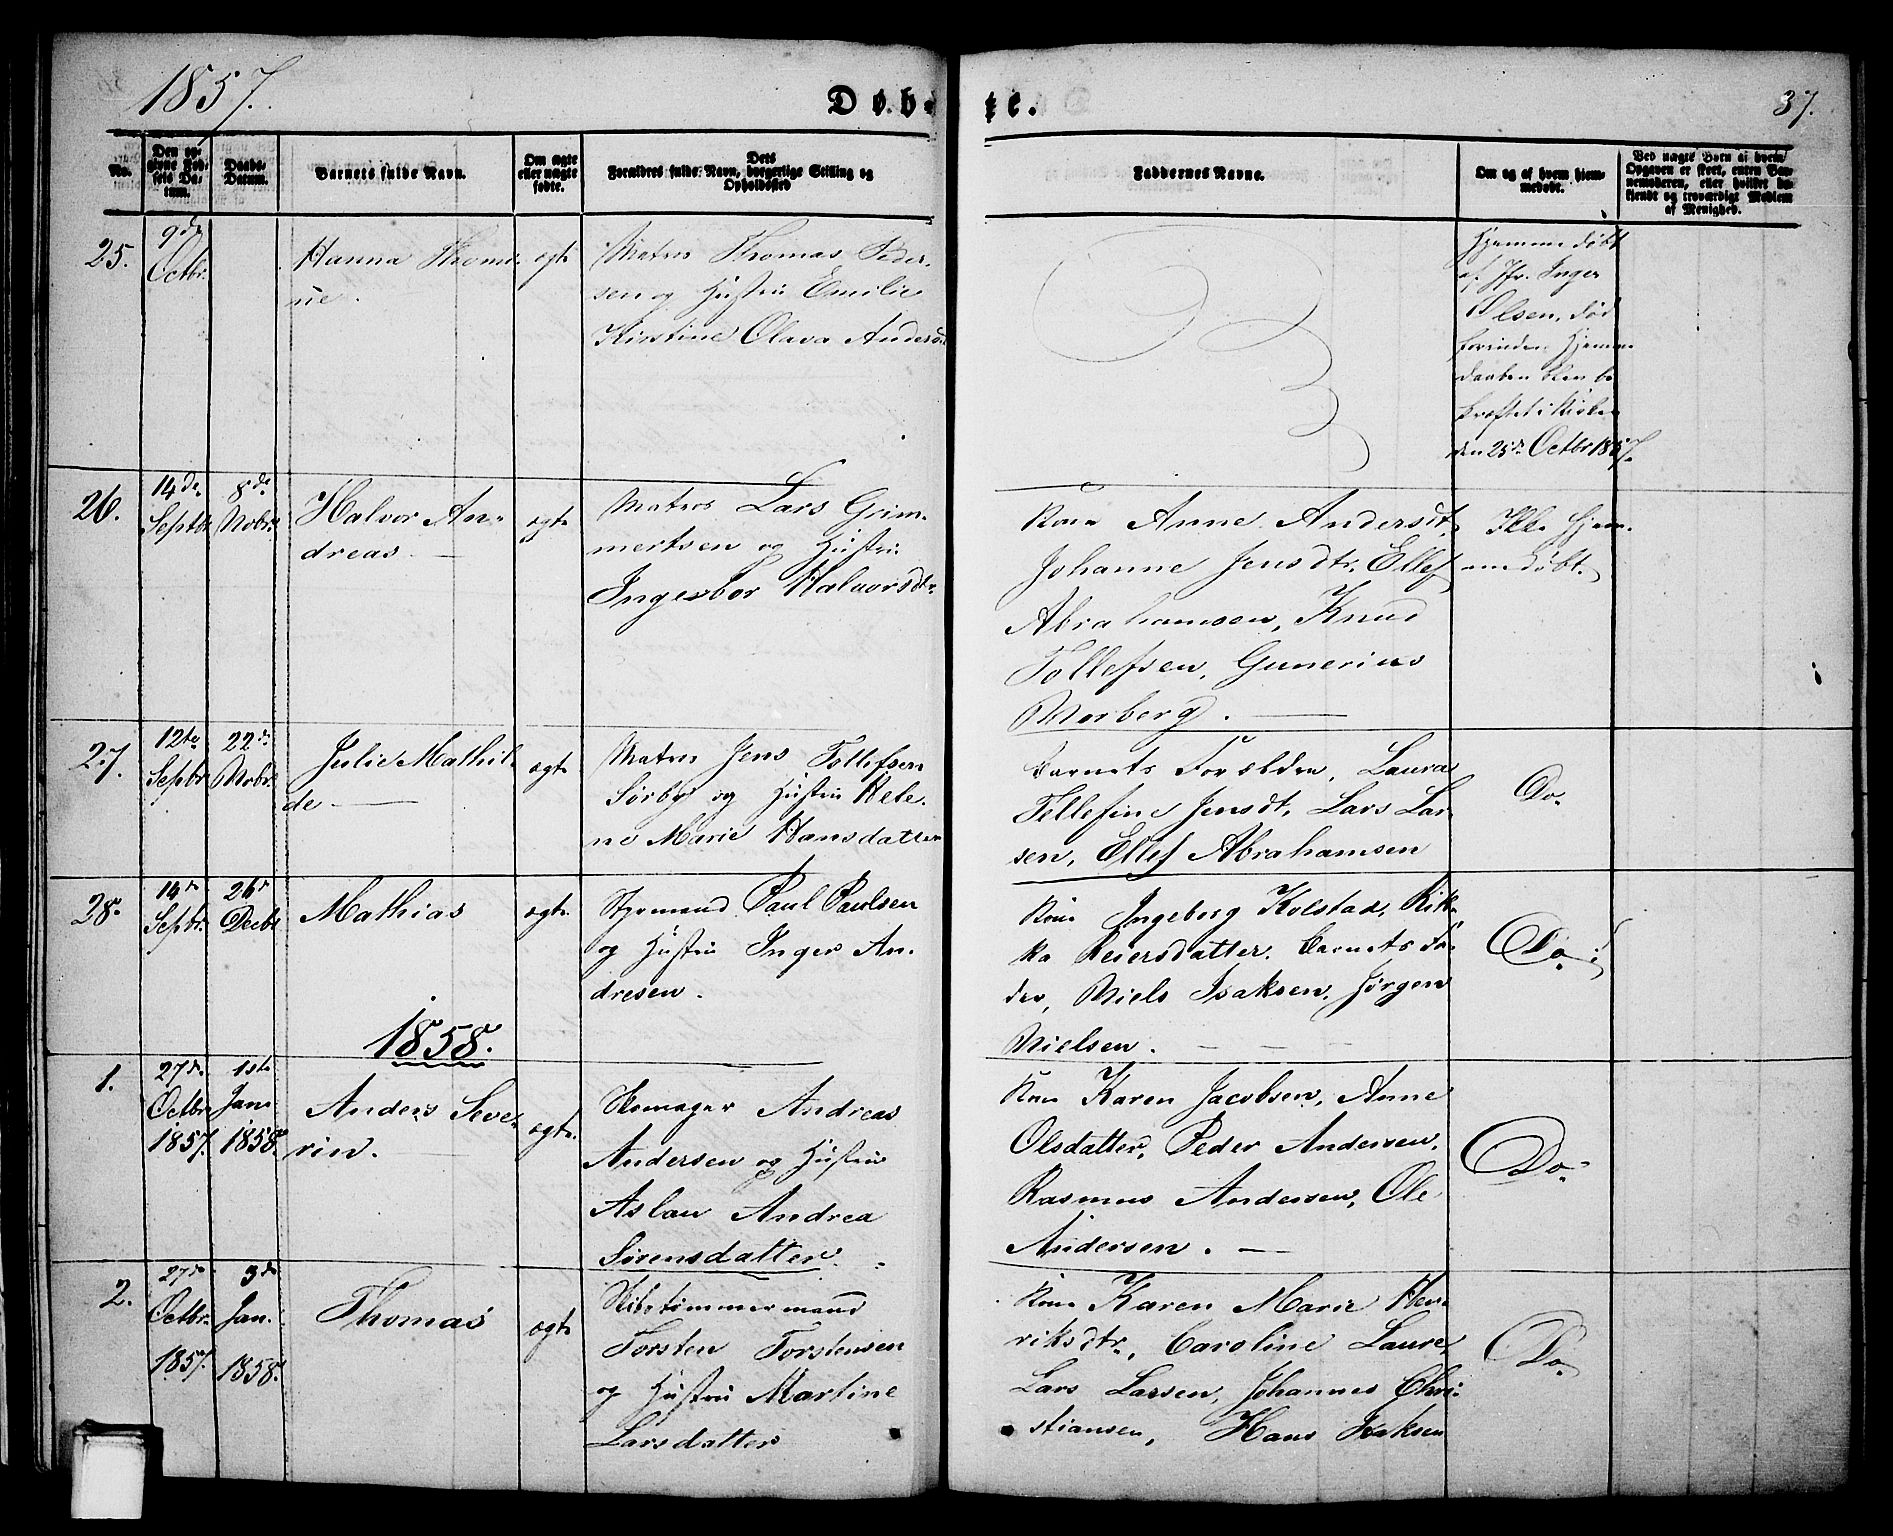 1857.
Døb-
te.
37.
No.
Den op-
givne Fød-
sels Da-
tum.
Daabs-
Datum.
Barnets fulde Navn.
Om ægte
eller uægte
fødte.
Dets
Forældres fulde Navn, borgerlige Stilling og
Opholdssted
Faddernes Navne.
Om og af hvem hjem-
medøbt.
Ved uægte Børn af hvem
Opgaven er skeet, enten Bar-
nemoderen, eller hvilket be-
kjendt og troværdigt Medlem
af Menighed.
25.
9de
Octbr.
Hanna Thomi-
ne.
ægte
Matros Thomas Peder-
sen og Hustru Emilie
Kirstine Olava Andersdt
Hjemmedøbt
af Jfr. Inger
Olsen, død
forinden Hjemme
daaben blev be
kræftet i Kirken
den 25de Octbr 1857.
26.
14de
Septbr
8de
Novbr.
Halvor An-
dreas
ægte
Matros Lars Grim-
mertsen og Hustru
Ingebor Halvorsdtr
Kone Anne Andersdt,
Johanne Jensdtr. Ellef
Abrahamsen, Knud
Tollefsen, Gunerius
Morberg.
Ikke hjem-
medøbt.
27.
12te
Sepbr
22de
Novbr.
Julie Mathil-
de
ægte
Matros Jens Tollefsen
Sørby og Hustru Hele-
ne Marie Hansdatter
Barnets Forældre, Laura
Tellefine Jensdt, Lars Lar-
sen, Ellef Abrahamsen
Do.
28.
14de
Sepbr.
26de
Decbr
Mathias
ægte.
Styrmand Paul Paulsen
og Hustru Inger An-
dresen.
Kone Ingeborg Kolstad, Rik-
ka Reiersdatter. Barnets Fa-
der, Niels Isaksen, Jørgen
Nielsen.
Do.
1858.
1.
27de
Octbr
1857.
1ste
Jan.
1858.
Anders Seve-
rin.
ægte.
Skomager Andreas
Andersen og Hustru
Aslau Andrea
Sørensdatter.
Kone Karen Jacobsen, Anne
Olsdatter, Peder Andersen,
Rasmus Andersen, Ole
Andersen.
Do.
2.
27de
Octbr.
1857.
3de
Jan.
1858.
Thomas
ægte
Skibstømmermand
Torsten Torstensen
og Hustru Martine
Larsdatter
Kone Karen Marie Hen-
riksdtr., Caroline Laure,
Lars Larsen, Johannes Chri-
stiansen, Hans Isaksen
Do.